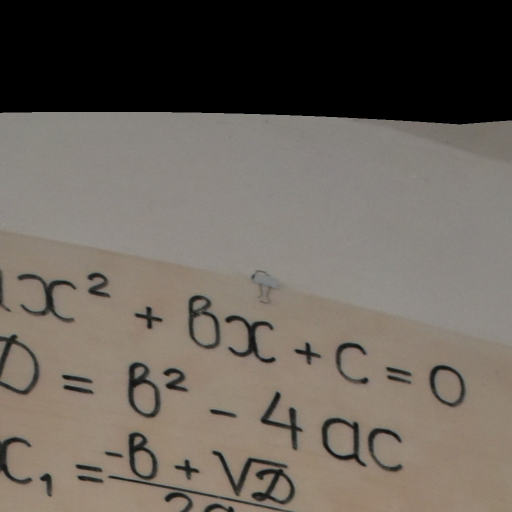 ax² + bx + c = 0
D = b² - 4ac
x₁ = -b + √D / 2a